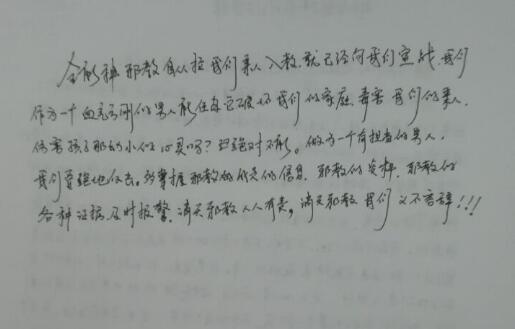 全能神邪教自从拉我们亲人入教,就已经向我们宣战,我们
作为一个血气方刚的男人能任由它破坏我们的家庭,毒害我们的亲人,
伤害孩子那幼小的心灵吗?绝对不能。做为一个有担当的男人,
我们要强地。掌握邪教的信息,邪教的资料,邪教的
各种证据及时报警,消灭邪教人人有责,消灭邪教我们义不容辞!!!